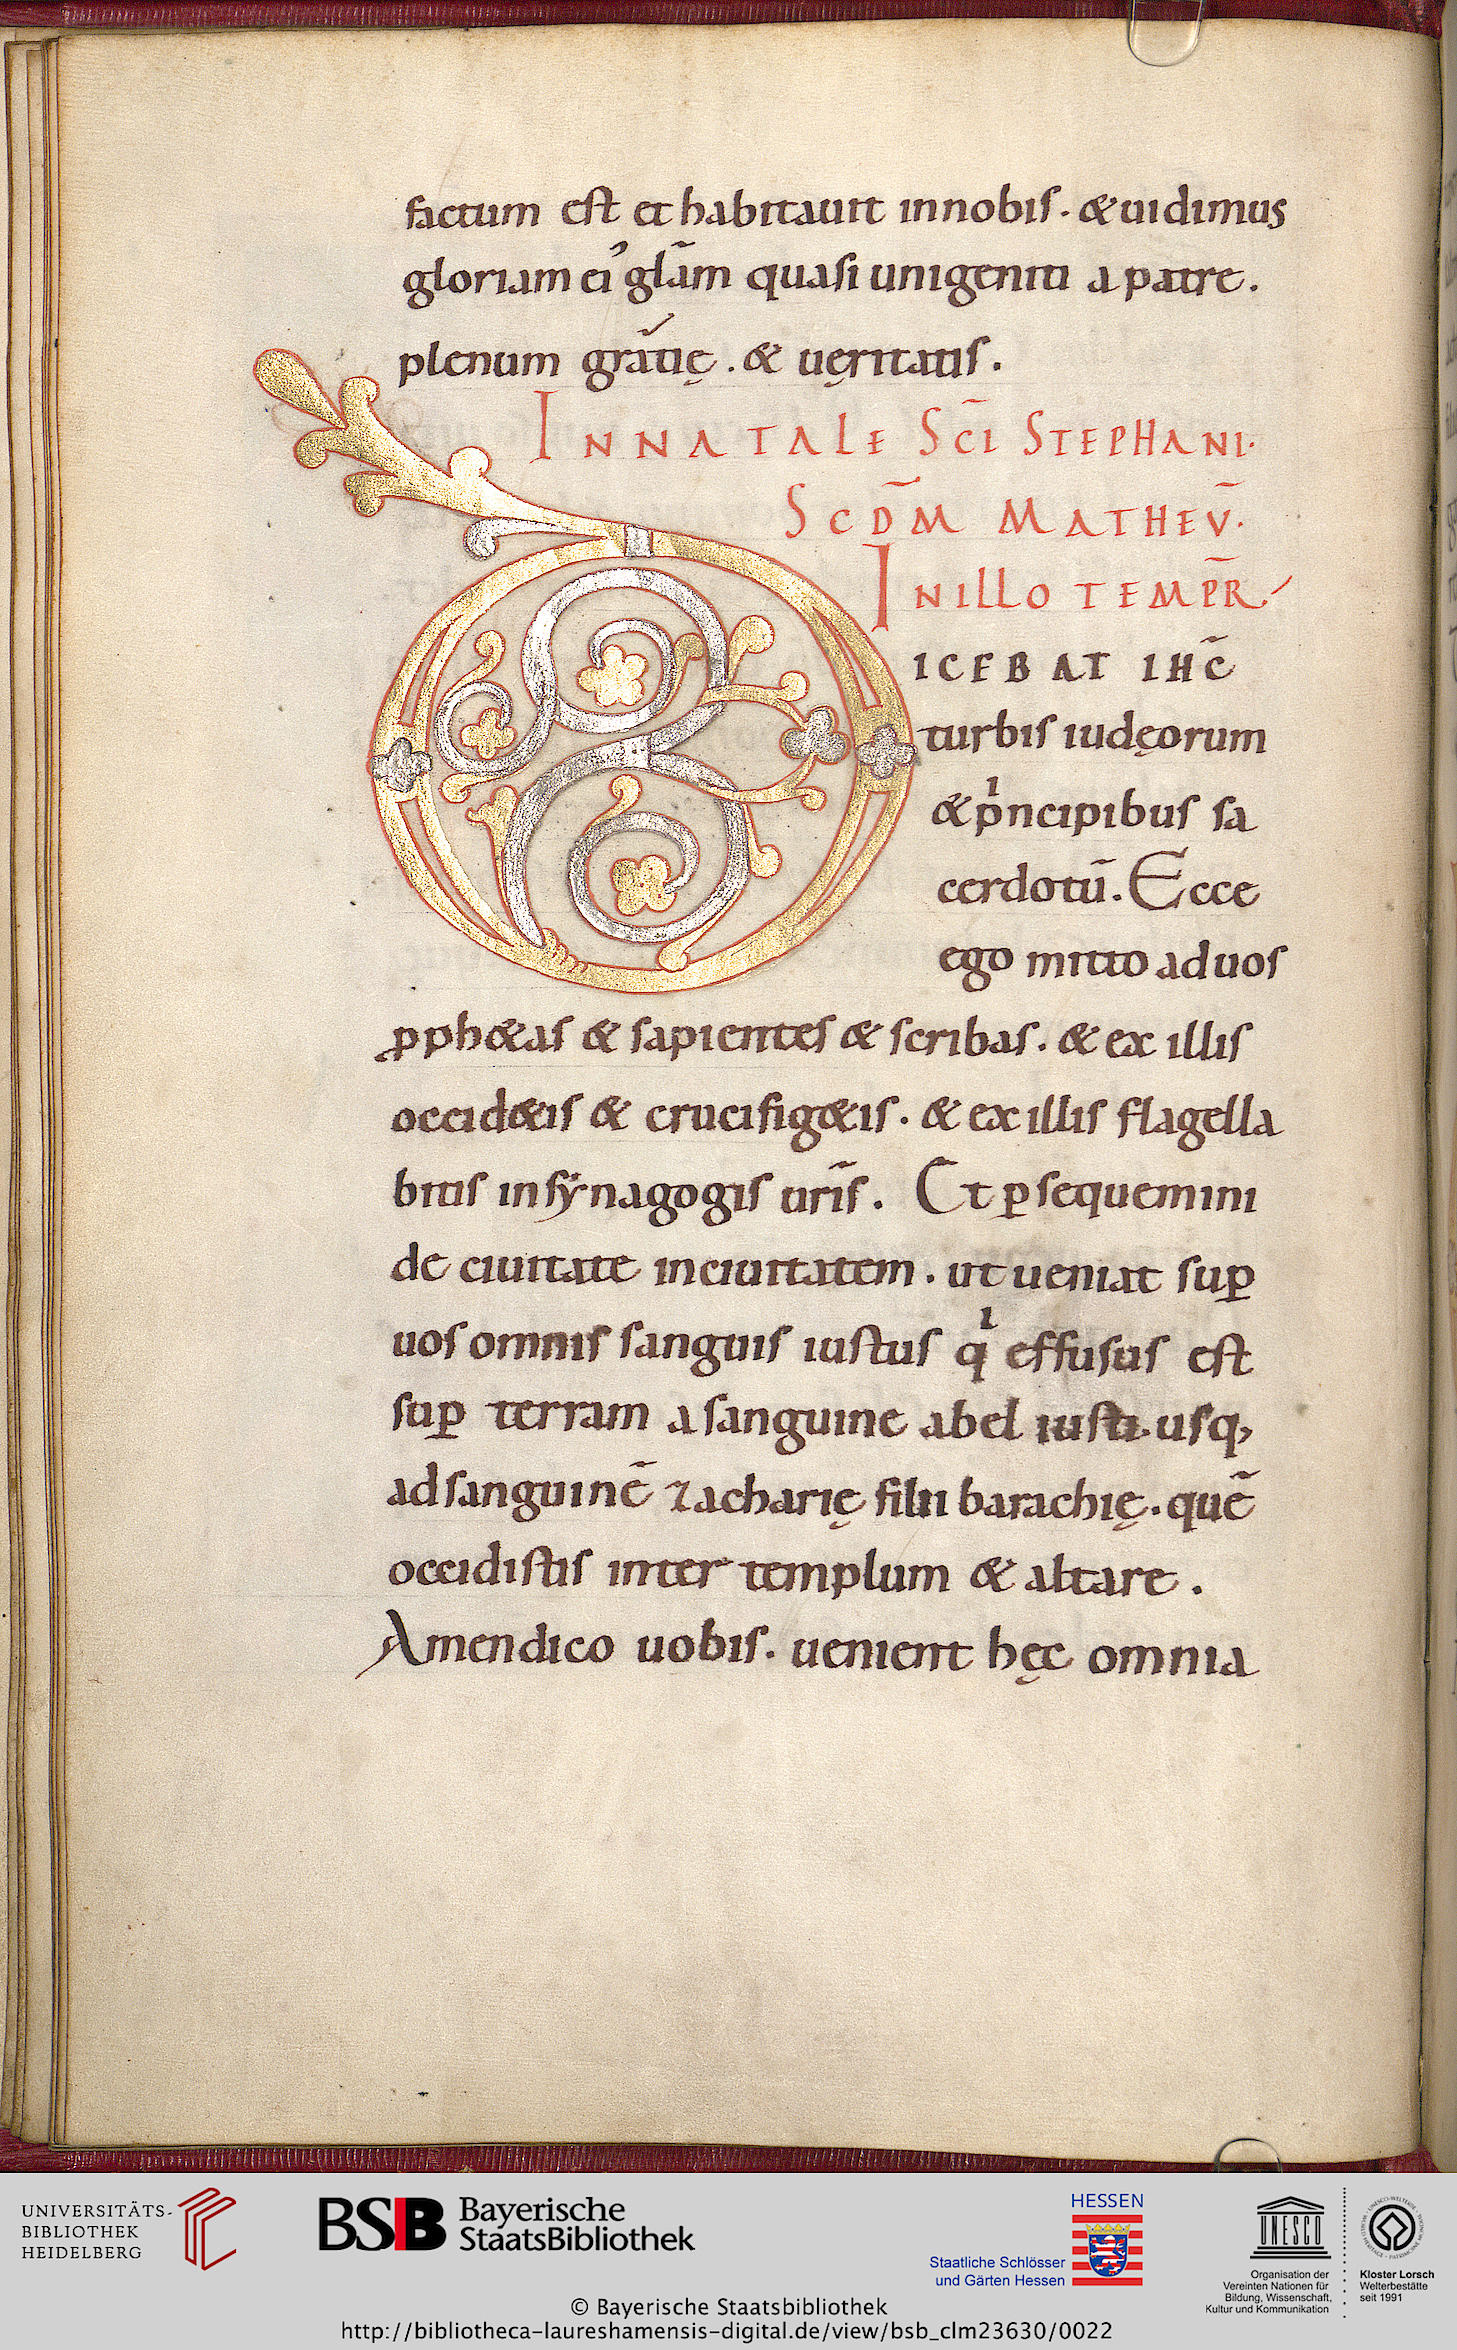 factum est et habitauit innobis. &uidimus
gloriam ei᾿ glām quasi unigeniti a patre.
plenum gratię. & uęritatis.
IN NATALE SC̄I STEPHANI.
SCD̄M MATHEV̄.
IN ILLO TEMPR̄
DICEBAT IHC̄
turbis iudęorum
&pͥncipibus sa
cerdotū. Ecce
ego mitto aduos
ꝓph&as & sapientes & scribas. & ex illis
occid&is & crucifig&is. & ex illis flagella
bitis insẏnagogis ur̄is. Et ꝑsequemini
de ciuitate inciuitatem. ut ueniat suꝑ
uos omnis sanguis iustus qͥ effusus est
suꝑ terram a sanguine abel iusti. usq,
adsanguinē zacharię filii barachię. quē
occidistis inter templum & altare.
Amendico uobis. uenient hęc omnia
UNIVERSITÄTS-
BIBLIOTHEK
HEIDELBERG
BSB Bayerische
StaatsBibliothek
HESSEN
Staatliche Schlösser
und Gärten Hessen
UNESCO
Organisation der
Vereinten Nationen für
Bildung, Wissenschaft,
Kultur und Kommunikation
Kloster Lorsch
Welterbestätte
seit 1991
© Bayerische Staatsbibliothek
http://bibliotheca-laureshamensis-digital.de/view/bsb_clm23630/0022